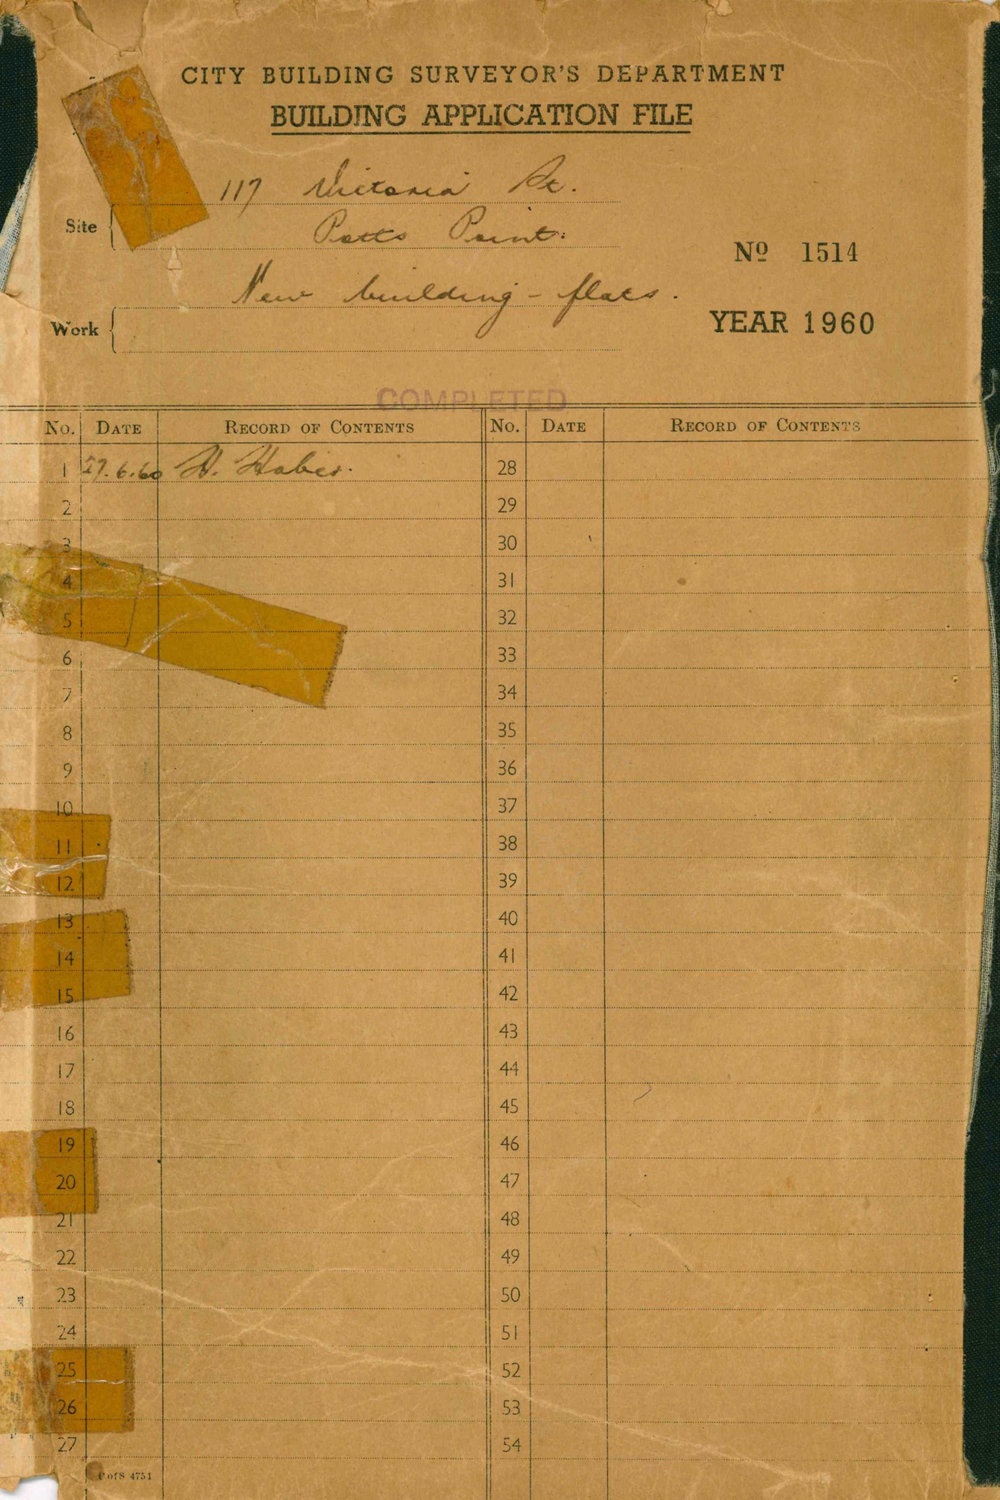 CITY BUILDING SURVEYOR'S DEPARTMENT
BUILDING APPLICATION FILE
117 Victoria St.
Site
Potts Point.
Nº 1514
New building - flats.
Work
YEAR 1960
COMPLETED
No. DATE RECORD OF CONTENTS No. DATE RECORD OF CONTENTS
1 27.6.60 H. 28
2 29
3 30
4 31
5 32
6 33
7 34
8 35
9 36
10 37
11 38
12 39
13 40
14 41
15 42
16 43
17 44
18 45
19 46
20 47
21 48
22 49
23 50
24 51
25 52
26 53
27 54
C of S 4751